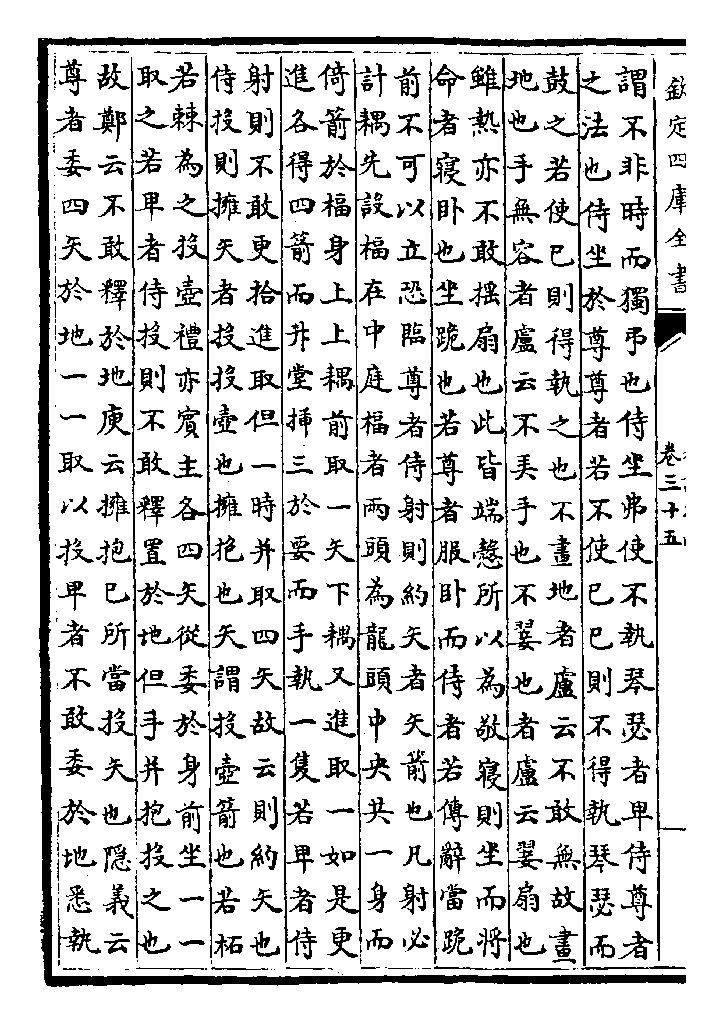 欽定四庫全書
卷三十五
謂不非時而獨弔也侍坐弗使不執琴瑟者卑侍尊者
之法也侍坐於尊尊者若不使己己則不得執琴瑟而
鼓之若使已則得執之也不畫地者盧云不敢無故畫
地也手無容者盧云不弄手也不翣也者盧云翣扇也
雖熱亦不敢揺扇也此皆端慤所以為敬寢則坐而將
命者寢卧也坐跪也若尊者服卧而侍者若傳辭當跪
前不可以立恐臨尊者侍射則約矢者矢箭也凡射必
計耦先設楅在中庭楅者兩頭為龍頭中央共一身而
倚箭於楅身上上耦前取一矢下耦又進取一如是更
進各得四箭而升堂挿三於要而手執一隻若卑者侍
射則不敢更拾進取但一時并取四矢故云則約矢也
侍投則擁矢者投投壺也擁抱也矢謂投壺箭也若柘
若棘為之投壺禮亦賓主各四矢從委於身前坐一一
取之若卑者侍投則不敢釋置於地但手并抱投之也
故鄭云不敢釋於地庾云擁抱已所當投矢也隠義云
尊者委四矢於地一一取以投卑者不敢委於地悉執